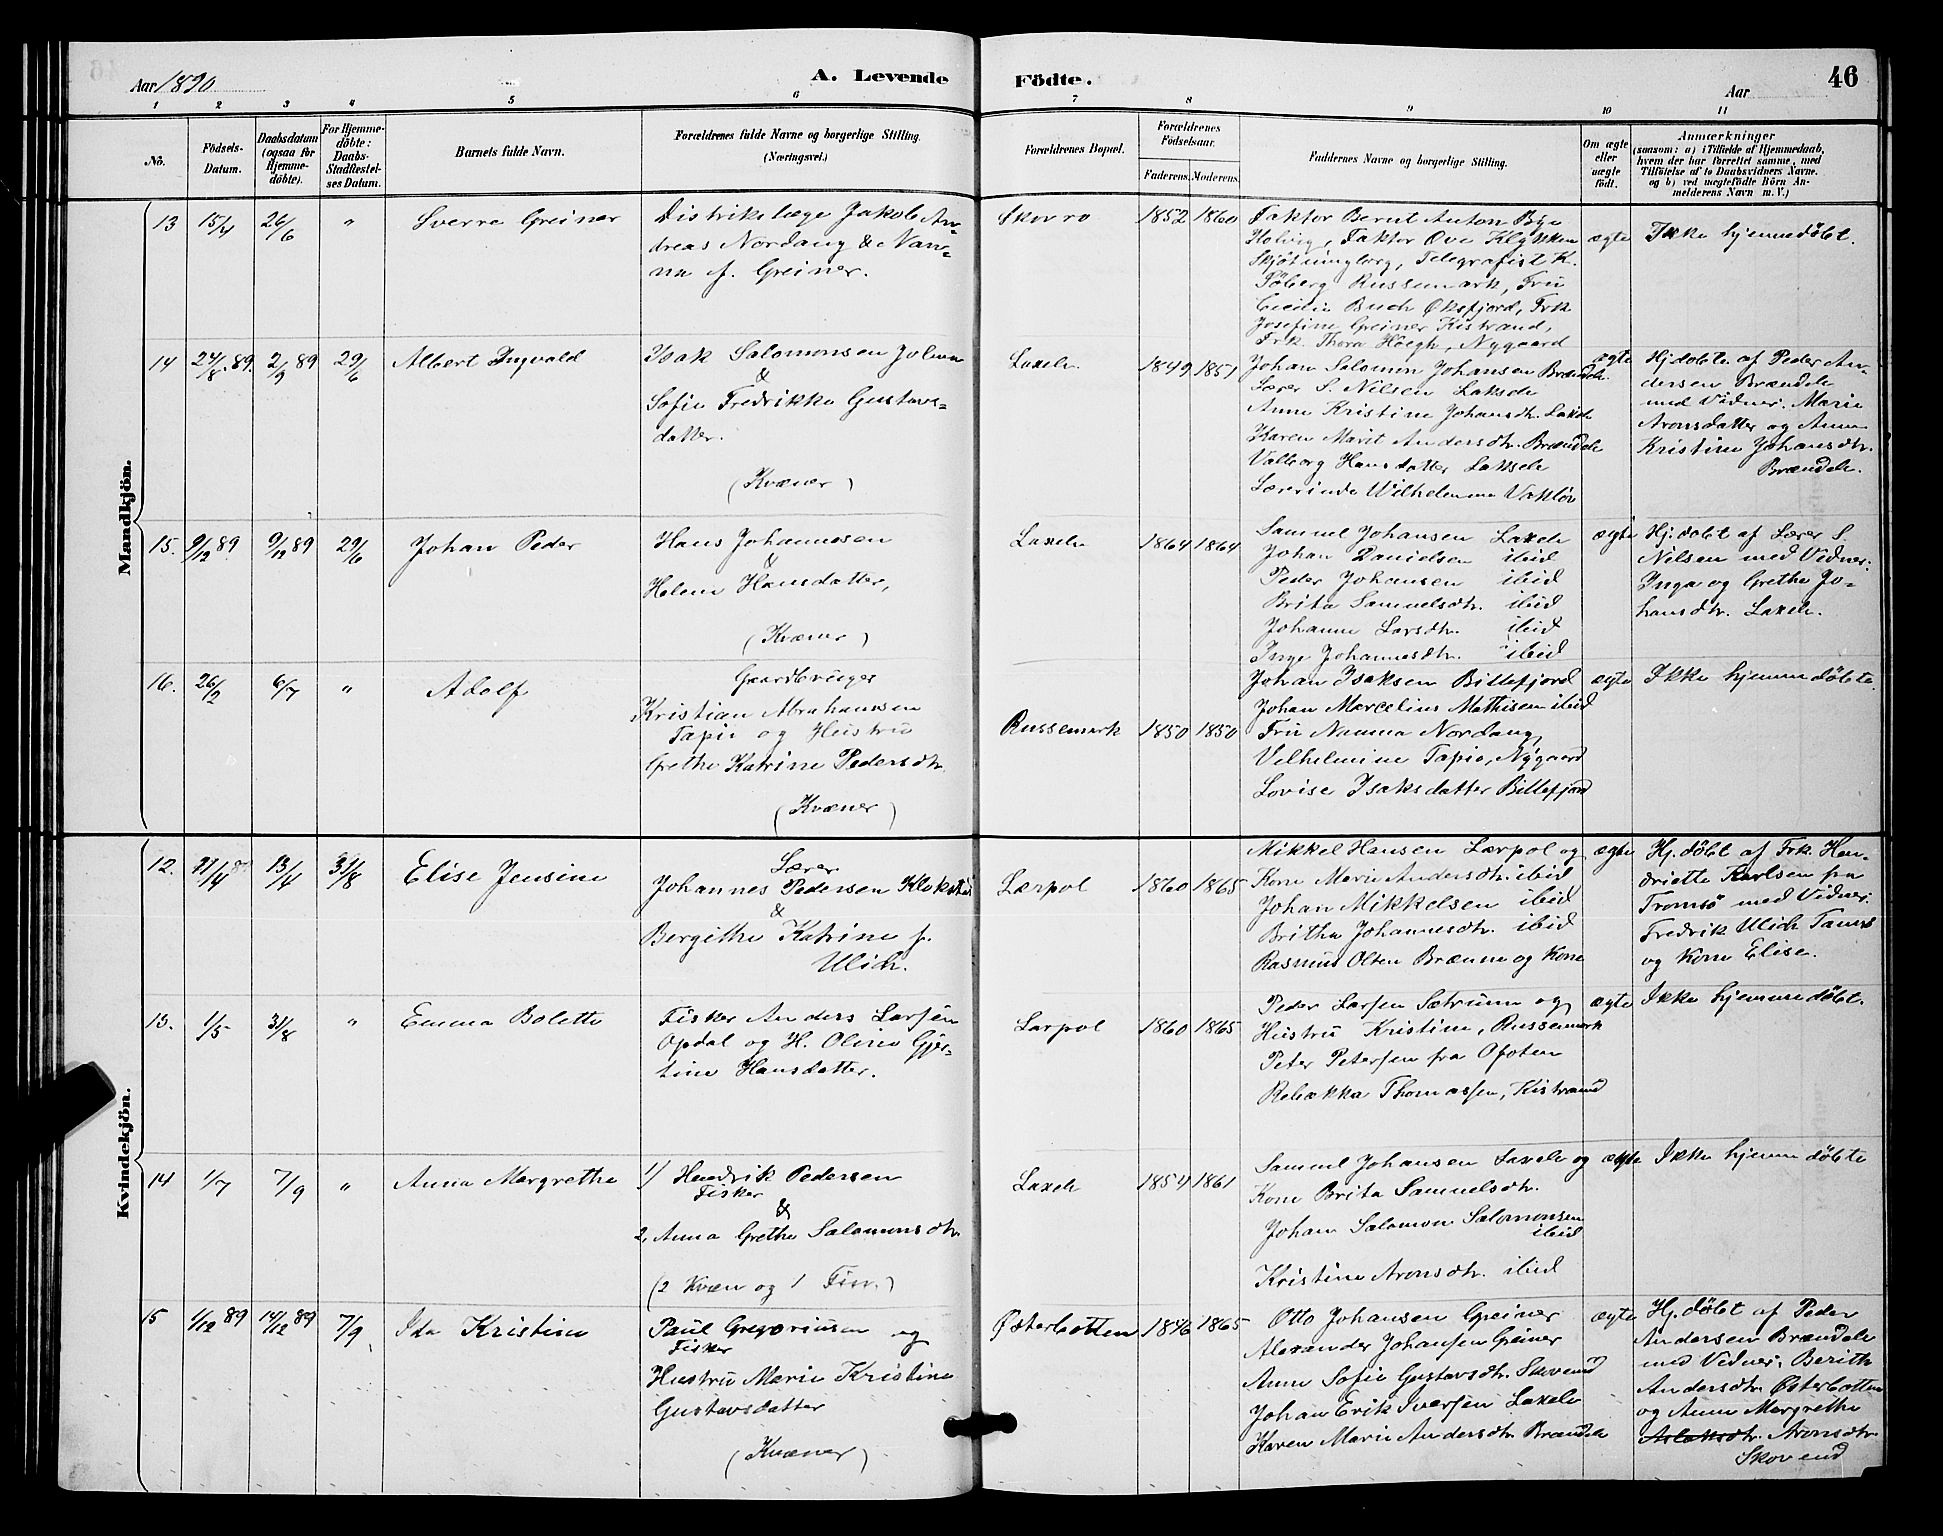 Aar 1890
A. Levende
Födte.
Aar
46
1 2 3 4 5 6 7 8 9 10 11
No.
Födsels-
Datum.
Daabsdatum
(ogsaa for
Hjemme-
döbte).
For Hjemme-
döbte:
Daabs-
Stadfæstel-
ses Datum.
Barnets fulde Navn.
Forældrenes fulde Navne og borgerlige Stilling.
(Næringsvei.)
Forældrenes Bopæl.
Forældrenes
Födselsaar.
Faderens. Moderens.
Faddernes Navne og borgerlige Stilling.
Om ægte
eller
uægte
födt.
Anmærkninger
(saasom: a) i Tilfælde af Hjemmedaab,
hvem der har forrettet samme, med
Tilföielse af to Daabsvidners Navne,
og b) ved uægtefödte Börn An-
melderens Navn m. V.)
Mandkjön.
13 15/4 26/6 " Sverre Greiner
Distriktslæge Jakob An-
dreas Nordang & Nan-
na f. Greiner.
Skovro 1852 1860
Faktor Bernt Anton Bye
Kolvig, Faktor Ove Klykken
Skjötningberg, Telegrafist K.
Söberg Russemark, Fru
Cecilie Buch Øksfjord, Frk
Josefine Greiner Kistrand,
Frk. Thora Höegh, Nygaard
ægte
Ikke hjemmedöbt.
14 24/8 89. 2/9 89 29/6 Albert Ingvald
Isak Salomonsen Johan
&
Sofie Fredrikke Gustavs-
datter.
(Kvæner)
Laxelv 1849 1851
Johan Salomon Johansen Brændelv
Lærer S. Nilsen Lakselv
Anne Kristine Johansdtr. Laxelv
Karen Marit Andersdtr. Brændelv
Valborg Hansdatter Lakselv
Lærerinde Wilhelmine
ægte
Hj.döbte af Peder An-
dersen Brændelv
med Vidner. Marie
Aronsdatter og Anne
Kristine Johansdtr.
Brændelv.
15. 9/12 89 9/12 89 29/6 Johan Peder
Hans Johannesen
&
Helene Hansdatter,
(Kvæner)
Laxelv 1864 1864
Samuel Johansen Laxelv
Johan Danielsen ibid
Peder Johansen ibid
Brita Samuelsdtr. ibid
Johanne Larsdtr. ibid
Inge Johannesdtr. ibid
ægte
Hj.döbt af Lærer S.
Nilsen med Vidner:
Inga og Grethe Jo-
hansdtr. Laxelv.
16. 26/2 6/7 " Adolf
Gaardbruger
Kristian Abrahamsen
Tapio og Hustru
Grethe Katrine Pedersdtr.
(Kvæner)
Russemark 1850 1850
Johan Isaksen Billefjord
Johan Marcelius Mathisen ibid
Fru Nanna Nordang,
Vilhelmine Tapio, Nygaard
Lovise Isaksdatter Billefjord
ægte
Ikke hjemmedöbte.
Kvindekjön.
12. 13/4 31/8 Elise Jensine
Lærer
Johannes Pedersen
&
Bergithe Katrine f.
Ulich.
Lærpol 1860 1865
Mikkel Hansen Lærpol og
Kone Marie Andersdtr. ibid
Johan Mikkelsen ibid
Britha Johannesdtr. ibid
Rasmus Olsen Brænne og Kone
ægte
Hj.döbt af Frk. Hen-
driette Karlsen fra
Tromsö med Vidner.
Fredrik Ulich Tamsö
og Kone Elise.
13. 1/5 31/8 " Emma Bolette
Fisker Anders Larsen
Opdal og H. Oline Gjer-
tine Hansdatter.
Larpol 1860 1865
Peder Larsen Sætrum og
Hustru Kristine, Russemark
Peter Petersen fra Ofoten
Rebækka Thomassen, Kistrand
ægte
Ikke hjemmedöbt.
14 1/7 7/9 " Anna Margrethe
1/ Hendrik Pedersen
Fisker
&
2, Anna Grethe Salomonsdtr.
(2 Kvæn og 1 Fin.)
Laxelv 1854 1861
Samuel Johansen Laxelv og
Kone Brita Samuelsdtr.
Johan Salomon Salomonsen
ibid
Kristine Aronsdtr. ibid
ægte
Ikke hjemmedöbte
15 1/12 89 14/12 89 7/9. Ida Kristine
Paul Gregoriusen og
Fisker
Hustru Marie Kristine
Gustavsdatter
(Kvæner)
Østerbotten 1846 1865
Otto Johansen Greiner
Alexander Johansen Greiner
Anne Sofie Gustavsdtr. Skovend
Johan Erik Iversen Laxelv
Karen Marie Andersdtr Brændelv
ægte
Hj.döbt af Peder
Andersen Brændelv
med Vidner, Berith
Andersdtr. Østerbotten
og Anne Margrethe
Aslaksdtr. Aronsdtr.
Skovend